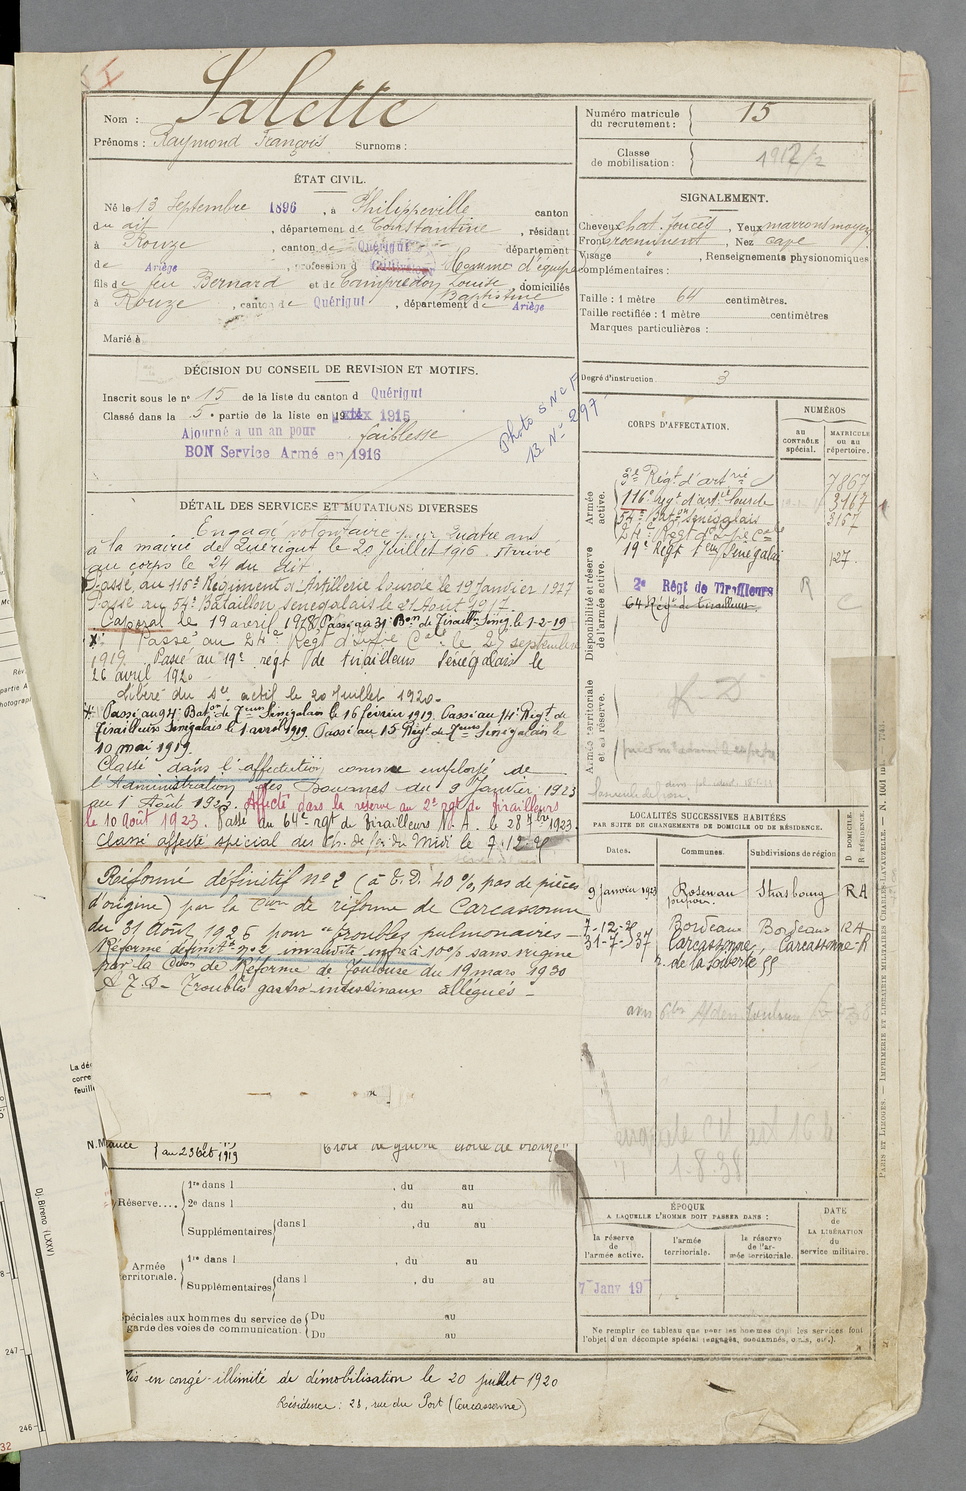 Salette
Nom :
Prénoms : Raymond François Surnoms :
Numéro matricule du recrutement : 15
Classe de mobilisation :
ÉTAT CIVIL.
Né le 13 Septembre 1896, à Philippeville canton
du dit, département de Constantine, résidant
à Rouze, canton de Quérigut département
de Ariège, profession d Homme d'équipe
fils de feu Bernard et de Campredon Louise Baptistine, domiciliés
à Rouze, canton de Quérigut, département de Ariège
Marié à
SIGNALEMENT.
Cheveux chat. foncés, Yeux marrons moyens
Front proeminent, Nez cave
Visage " , Renseignements physionomiques
complémentaires :
Taille : 1 mètre 64 centimètres.
Taille rectifiée : 1 mètre centimètres
Marques particulières :
Degré d'instruction. 3
DÉCISION DU CONSEIL DE REVISION ET MOTIFS.
Inscrit sous le n° 15 de la liste du canton d Quérigut
Classé dans la 5e partie de la liste en 1915
Ajourné a un an pour faiblesse
BON Service Armé en 1916
Photo SNCF
B N° 297
DÉTAIL DES SERVICES ET MUTATIONS DIVERSES
Engagé volontaire pour quatre ans
à la mairie de Quérigut le 20 Juillet 1916. Arrivé
au corps le 24 du dit.
Passé au 116e Régiment d'Artillerie lourde le 19 Janvier 1917
Passé au 54e Bataillon Sénégalais le 21 Août 1917.
Caporal le 19 avril 1918. Passé au 31e Bon de Tiraill. Sénég. le 1-2-19
Passé au 24e Régt d'Infie Cale le 27 septembre
1919. Passé au 19e régt de tirailleurs Sénégalais le
26 avril 1920
Libéré du Sce actif le 20 Juillet 1920.
Passé au 94e Baton de Teurs Sénégalais le 16 février 1919. Passé au 14e Régt de
Tirailleurs Sénégalais le 1 avril 1919. Passé au 15 Régt de Teurs Sénégalais le
10 mai 1919.
Classé dans l'affectation comme employé de
l'Administration des Douanes du 9 Janvier 1923
au 1 Août 1923. Affecté dans la réserve au 2e rgt de tirailleurs
le 10 août 1923. Passé au 64e rgt de Tirailleurs N. A. le 28 7bre 1923
Classé affecté spécial des Ch. de fer du Midi le 7.12.
Réformé définitif n° 2 (à T.D. 40 %, pas de pièces
d'origine) par la Cion de réforme de Carcassonne
du 31 Août 1926 pour "troubles pulmonaires –
Réforme définitve n° 2 invalidité infre à 10 % sans origine
par la Con de Réforme de Toulouse du 19 mars 1930
A T.D – Troubles gastro-intestinaux allégués –
CORPS D'AFFECTATION.
NUMÉROS
au CONTRÔLE spécial.
MATRICULE ou au répertoire.
Armée active.
3e Régt d'artrie 7867
116e régt d'artie lourde 3167
54e Baton sénégalais 3157
24e Régt d'Infie Cale
19e Régt Teurs Sénégalais 127
Disponibilité et réserve de l'armée active.
2e Régt de Tirailleurs
64 Régt de tirailleurs
R
C
Armée territoriale et sa réserve.
R D
LOCALITÉS SUCCESSIVES HABITÉES
PAR SUITE DE CHANGEMENTS DE DOMICILE OU DE RÉSIDENCE.
D. DOMICILE.
R. RÉSIDENCE.
Dates. Communes. Subdivisions de région
9 Janvier 1923 Rosenau Strasbourg RA
7-12- Bordeaux Bordeaux RA
31-7-37 Carcassonne, Carcassonne R
r. de la Liberté 55
1.8.38
au 23 Oct 1919
Croix de guerre étoile de bronze
Réserve.... 1re dans l , du au
2e dans l , du au
Supplémentaires dans l , du au
Armée territoriale. 1re dans l , du au
Supplémentaires dans l , du au
péciales aux hommes du service de garde des voies de communication. Du au
Du au
ÉPOQUE
A LAQUELLE L'HOMME DOIT PASSER DANS :
la réserve de l'armée active.
l'armée territoriale.
la réserve de l'armée territoriale.
DATE de LA LIBÉRATION du service militaire.
7 Janv 19
Ne remplir ce tableau que pour les hommes dont les services font
l'objet d'un décompte spécial (engagés, condamnés, o.m.s, etc.).
Mis en congé illimité de démobilisation le 20 juillet 1920
Résidence : 28, rue du Port (Carcassonne)
PARIS ET LIMOGES. — IMPRIMERIE ET LIBRAIRIE MILITAIRES CHARLES-LAVAUZELLE.
La dé
corre
feuill
N.M
Dj. Bireno (LXXV)
247
246
32